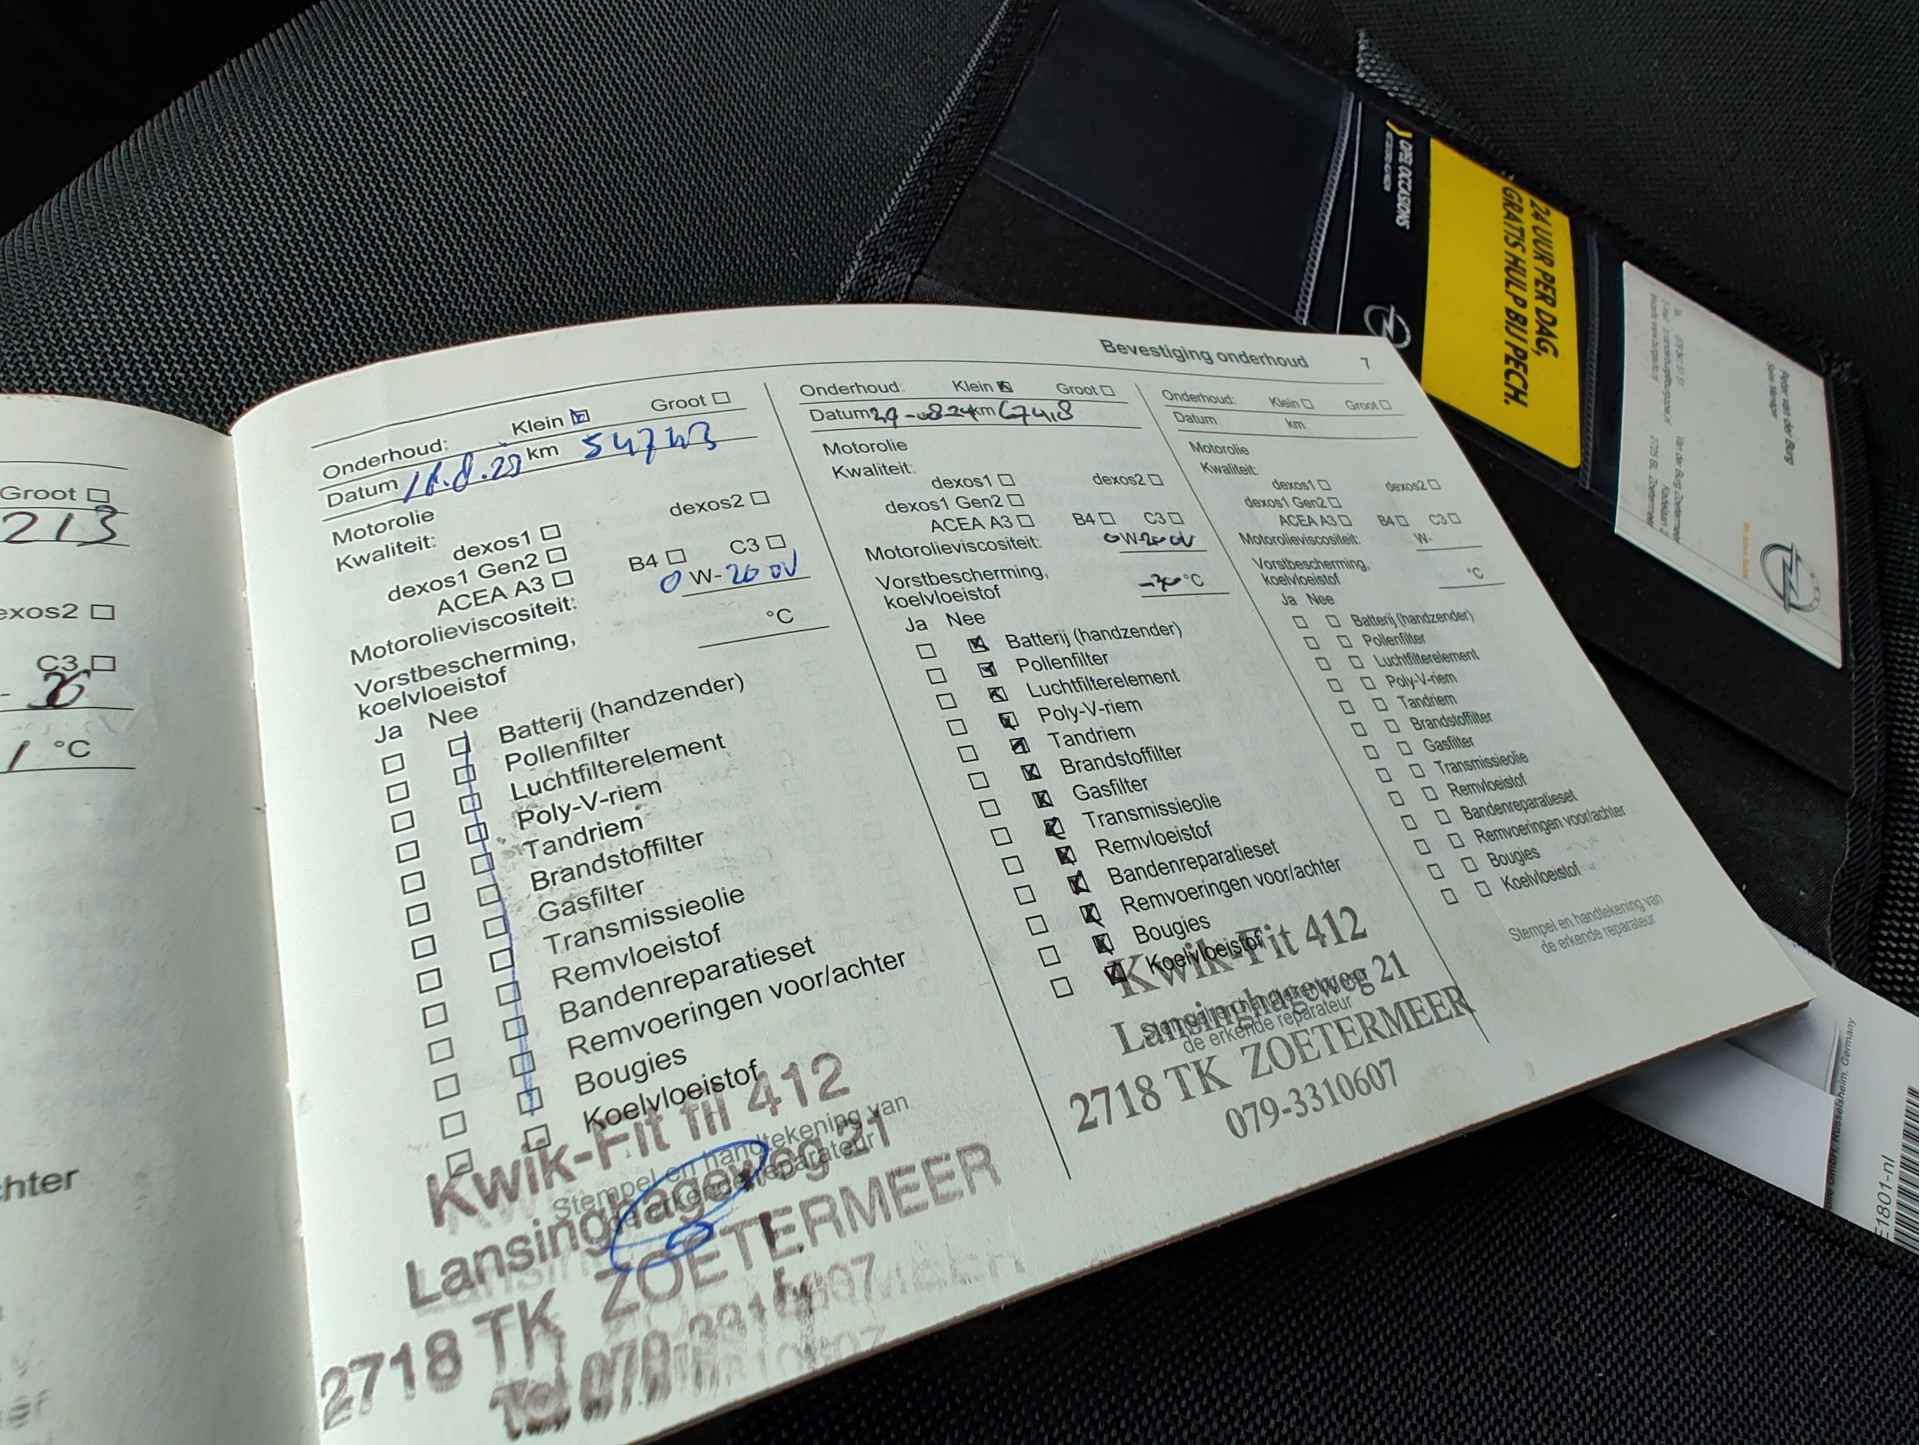 Groot
213
dexos2
C3
°C
hter
Bevestiging onderhoud 7
Onderhoud: Klein Groot
Datum 16.8.23 km 54743
Motorolie
Kwaliteit:
dexos1 dexos2
dexos1 Gen2
ACEA A3 B4 C3
Motorolieviscositeit: 0 W-20 OV
Vorstbescherming,
koelvloeistof °C
Ja Nee
Batterij (handzender)
Pollenfilter
Luchtfilterelement
Poly-V-riem
Tandriem
Brandstoffilter
Gasfilter
Transmissieolie
Remvloeistof
Bandenreparatieset
Remvoeringen voor/achter
Bougies
Koelvloeistof
Stempel en handtekening van
de erkende reparateur
Kwik-Fit 412
Lansinghageweg 21
2718 TK ZOETERMEER
Onderhoud: Klein Groot
Datum 29-0824 km 67418
Motorolie
Kwaliteit:
dexos1 dexos2
dexos1 Gen2
ACEA A3 B4 C3
Motorolieviscositeit: 0W-20 OV
Vorstbescherming,
koelvloeistof -30 °C
Ja Nee
Batterij (handzender)
Pollenfilter
Luchtfilterelement
Poly-V-riem
Tandriem
Brandstoffilter
Gasfilter
Transmissieolie
Remvloeistof
Bandenreparatieset
Remvoeringen voor/achter
Bougies
Koelvloeistof
de erkende reparateur
Kwik-Fit 412
Lansinghageweg 21
2718 TK ZOETERMEER
079-3310607
Onderhoud: Klein Groot
Datum km
Motorolie
Kwaliteit:
dexos1 dexos2
dexos1 Gen2
ACEA A3 B4 C3
Motorolieviscositeit: W-
Vorstbescherming,
koelvloeistof °C
Ja Nee
Batterij (handzender)
Pollenfilter
Luchtfilterelement
Poly-V-riem
Tandriem
Brandstoffilter
Gasfilter
Transmissieolie
Remvloeistof
Bandenreparatieset
Remvoeringen voor/achter
Bougies
Koelvloeistof
Stempel en handtekening van
de erkende reparateur
OPEL OCCASIONS
24 UUR PER DAG,
GRATIS HULP BIJ PECH.
Peter van der Burg
Rüsselsheim, Germany
F1801-nl